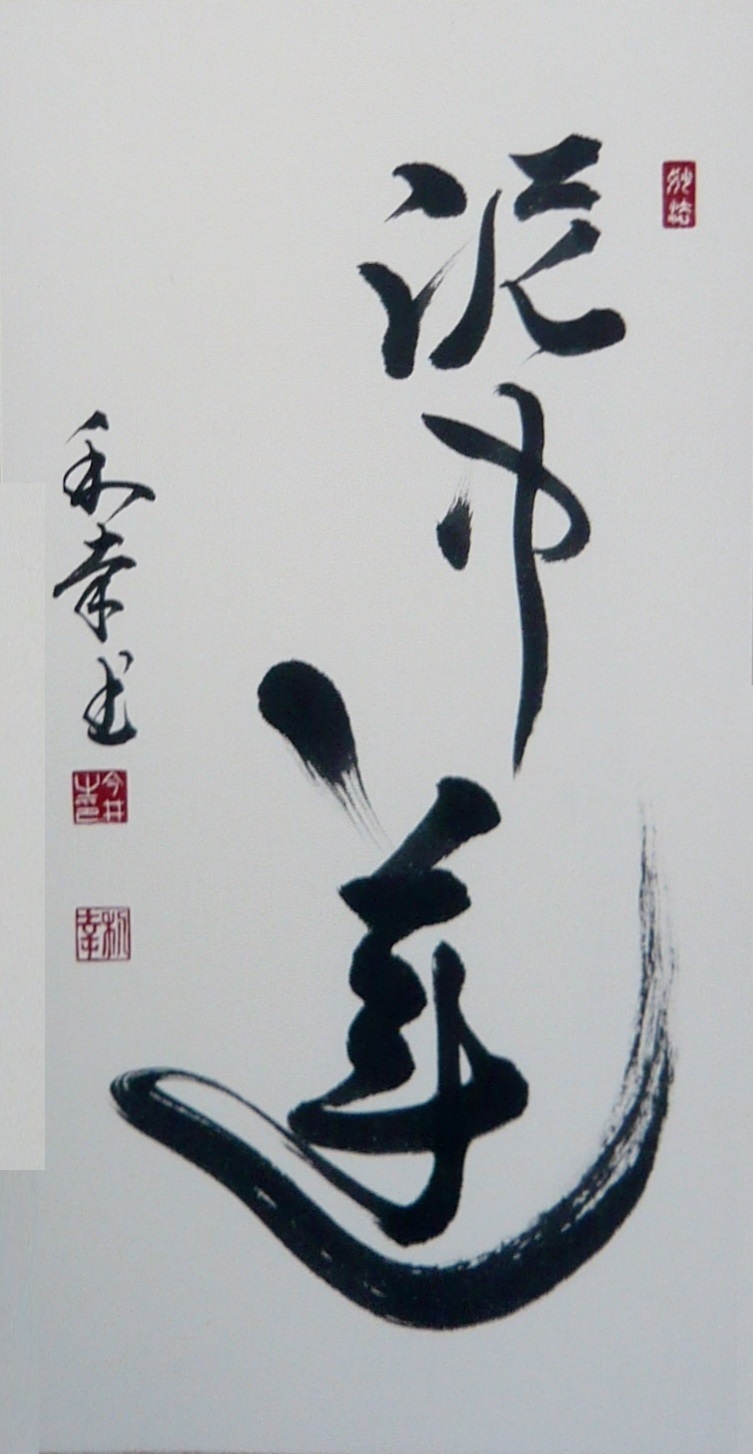 泥中蓮
利幸書
今井
利幸